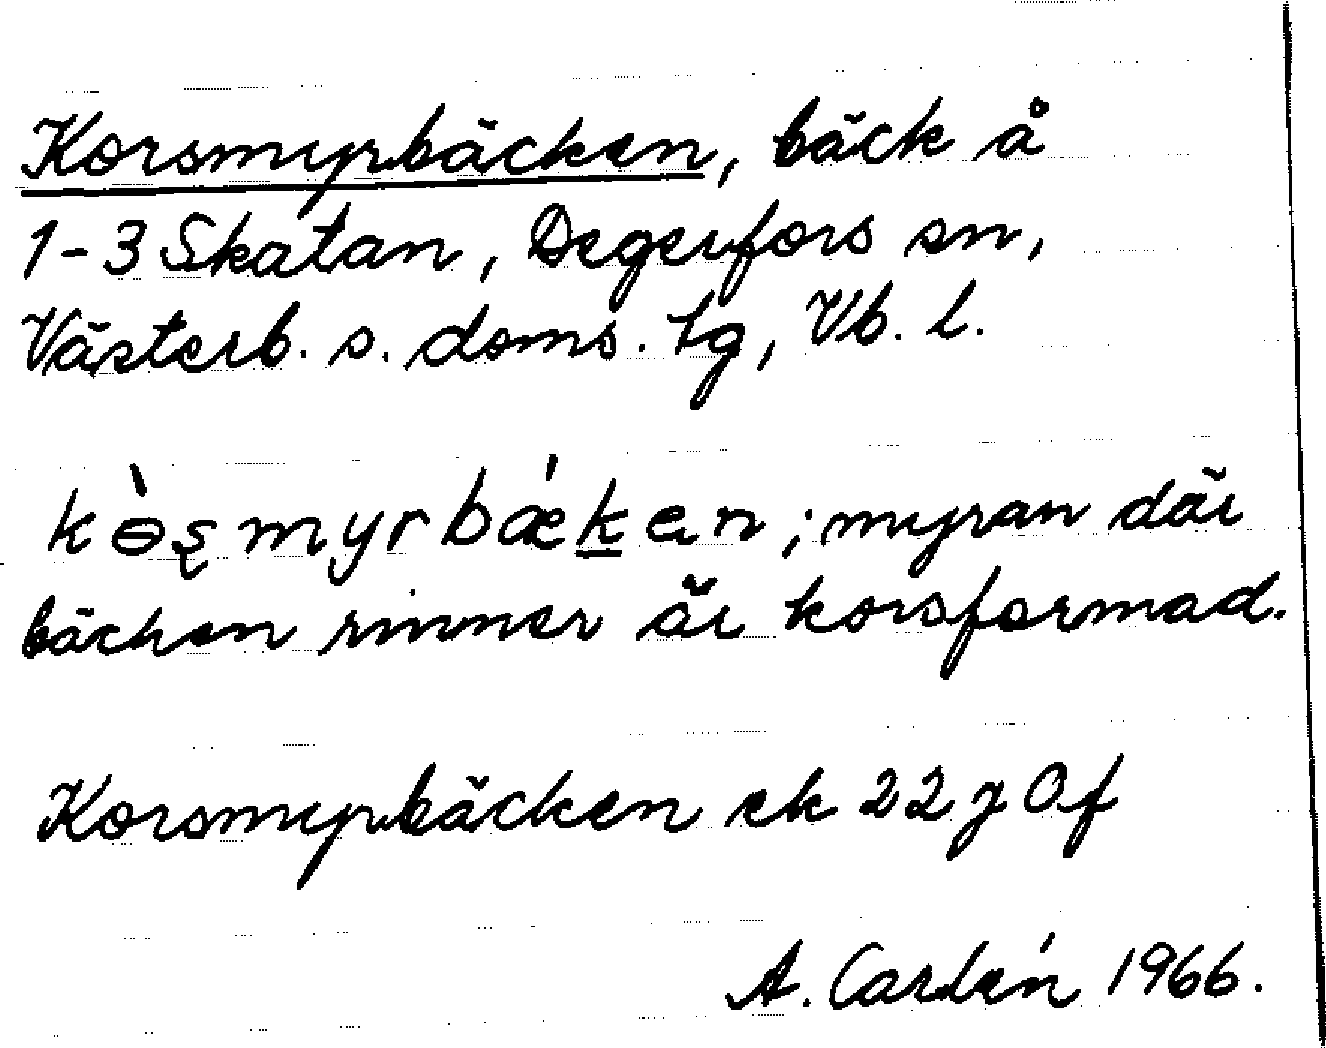 Korsmyrbäcken, bäck å
1-3 Skatan, Degerfors sn,
Västerb. s. doms. tg, Vb. l.
kɵ̀ʂmyrbǽk̲en; myran där
bäcken rinner är korsformad.
Korsmyrbäcken ek 22 g Of
A. Carlén 1966.